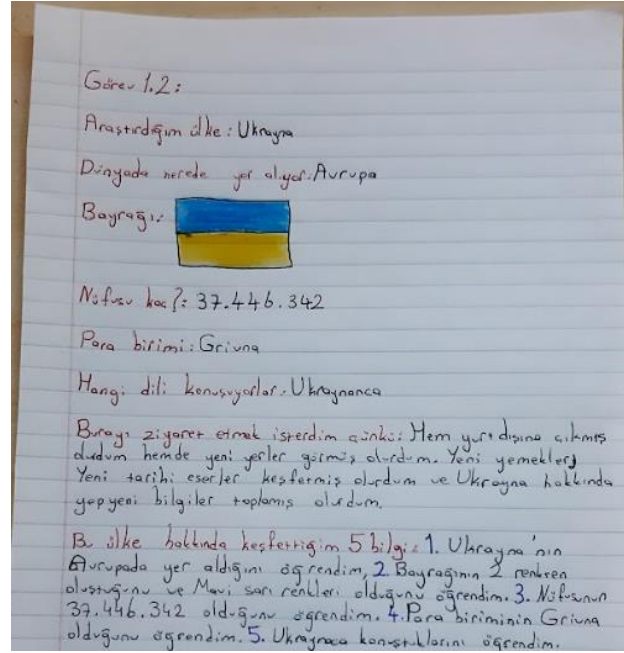 Görev 1.2:
Araştırdığım ülke: Ukrayna
Dünyada nerede yer alıyor: Avrupa
Bayrağı:
Nüfusu kaç?: 37.446.342
Para birimi: Griuna
Hangi dili konuşuyorlar: Ukraynanca
Burayı ziyaret etmek isterdim çünkü: Hem yurtdışına çıkmış
olurdum hemde yeni yerler görmüş olurdum. Yeni yemekler,
Yeni tarihi eserler keşfetmiş olurdum ve Ukrayna hakkında
yepyeni bilgiler toplamış olurdum.
Bu ülke hakkında keşfettiğim 5 bilgi: 1. Ukrayna'nın
Avrupada yer aldığını öğrendim, 2 Bayrağının 2 renkten
oluştuğunu ve Mavi sarı renkleri olduğunu öğrendim. 3. Nüfusunun
37.446.342 olduğunu öğrendim. 4. Para biriminin Griuna
olduğunu öğrendim. 5. Ukraynaca konuştuklarını öğrendim.